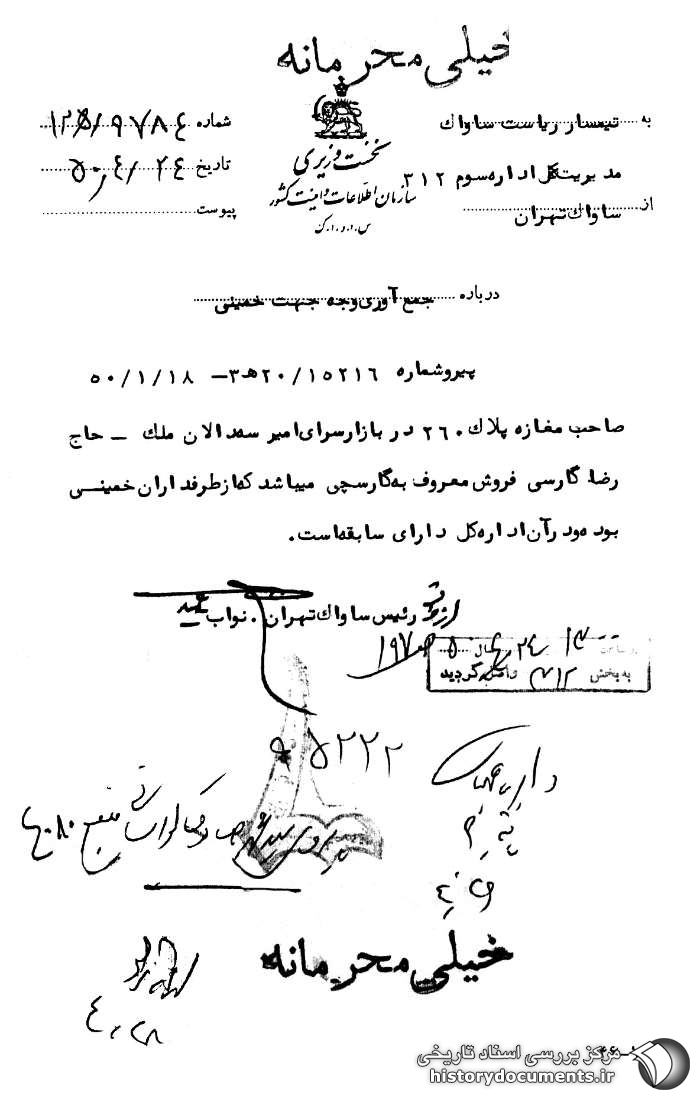 خیلی محرمانه
به تیمسار ریاست ساواك
مدیریت کل اداره سوم ۳۱۲
از ساواك تهران
نخست وزیری
سازمان اطلاعات و امنیت کشور
س.ا.و.ا.ك
شماره
تاریخ ۵۰,۴/۲۴
پیوست
درباره جمع آوری وجه جهت خمینی
پیرو شماره ۲۰/۱۵۲۱۶ ه‍ ۳ - ۵۰/۱/۱۸
صاحب مغازه پلاك ۲۶۰ در بازار سرای امیر سه دالان ملك - حاج
رضا گارسی فروش معروف به گارسچی میباشد که از طرفداران خمینی
بوده و در آن اداره کل دارای سابقه است.
رئیس ساواك تهران. نواب
ساعت ۱۳ ۲۴ سال ۵۰
به بخش ۳۱۲ واصل گردید
۹۵۲۲۲
خیلی محرمانه
۴,۲۸
مرکز بررسی اسناد تاریخی
historydocuments.ir